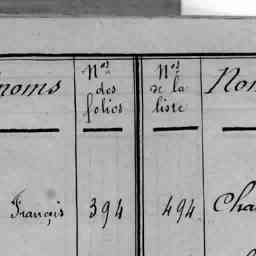 noms
Nos
des
folios
Nos
de la
liste
Nom
François 394 494 Cha